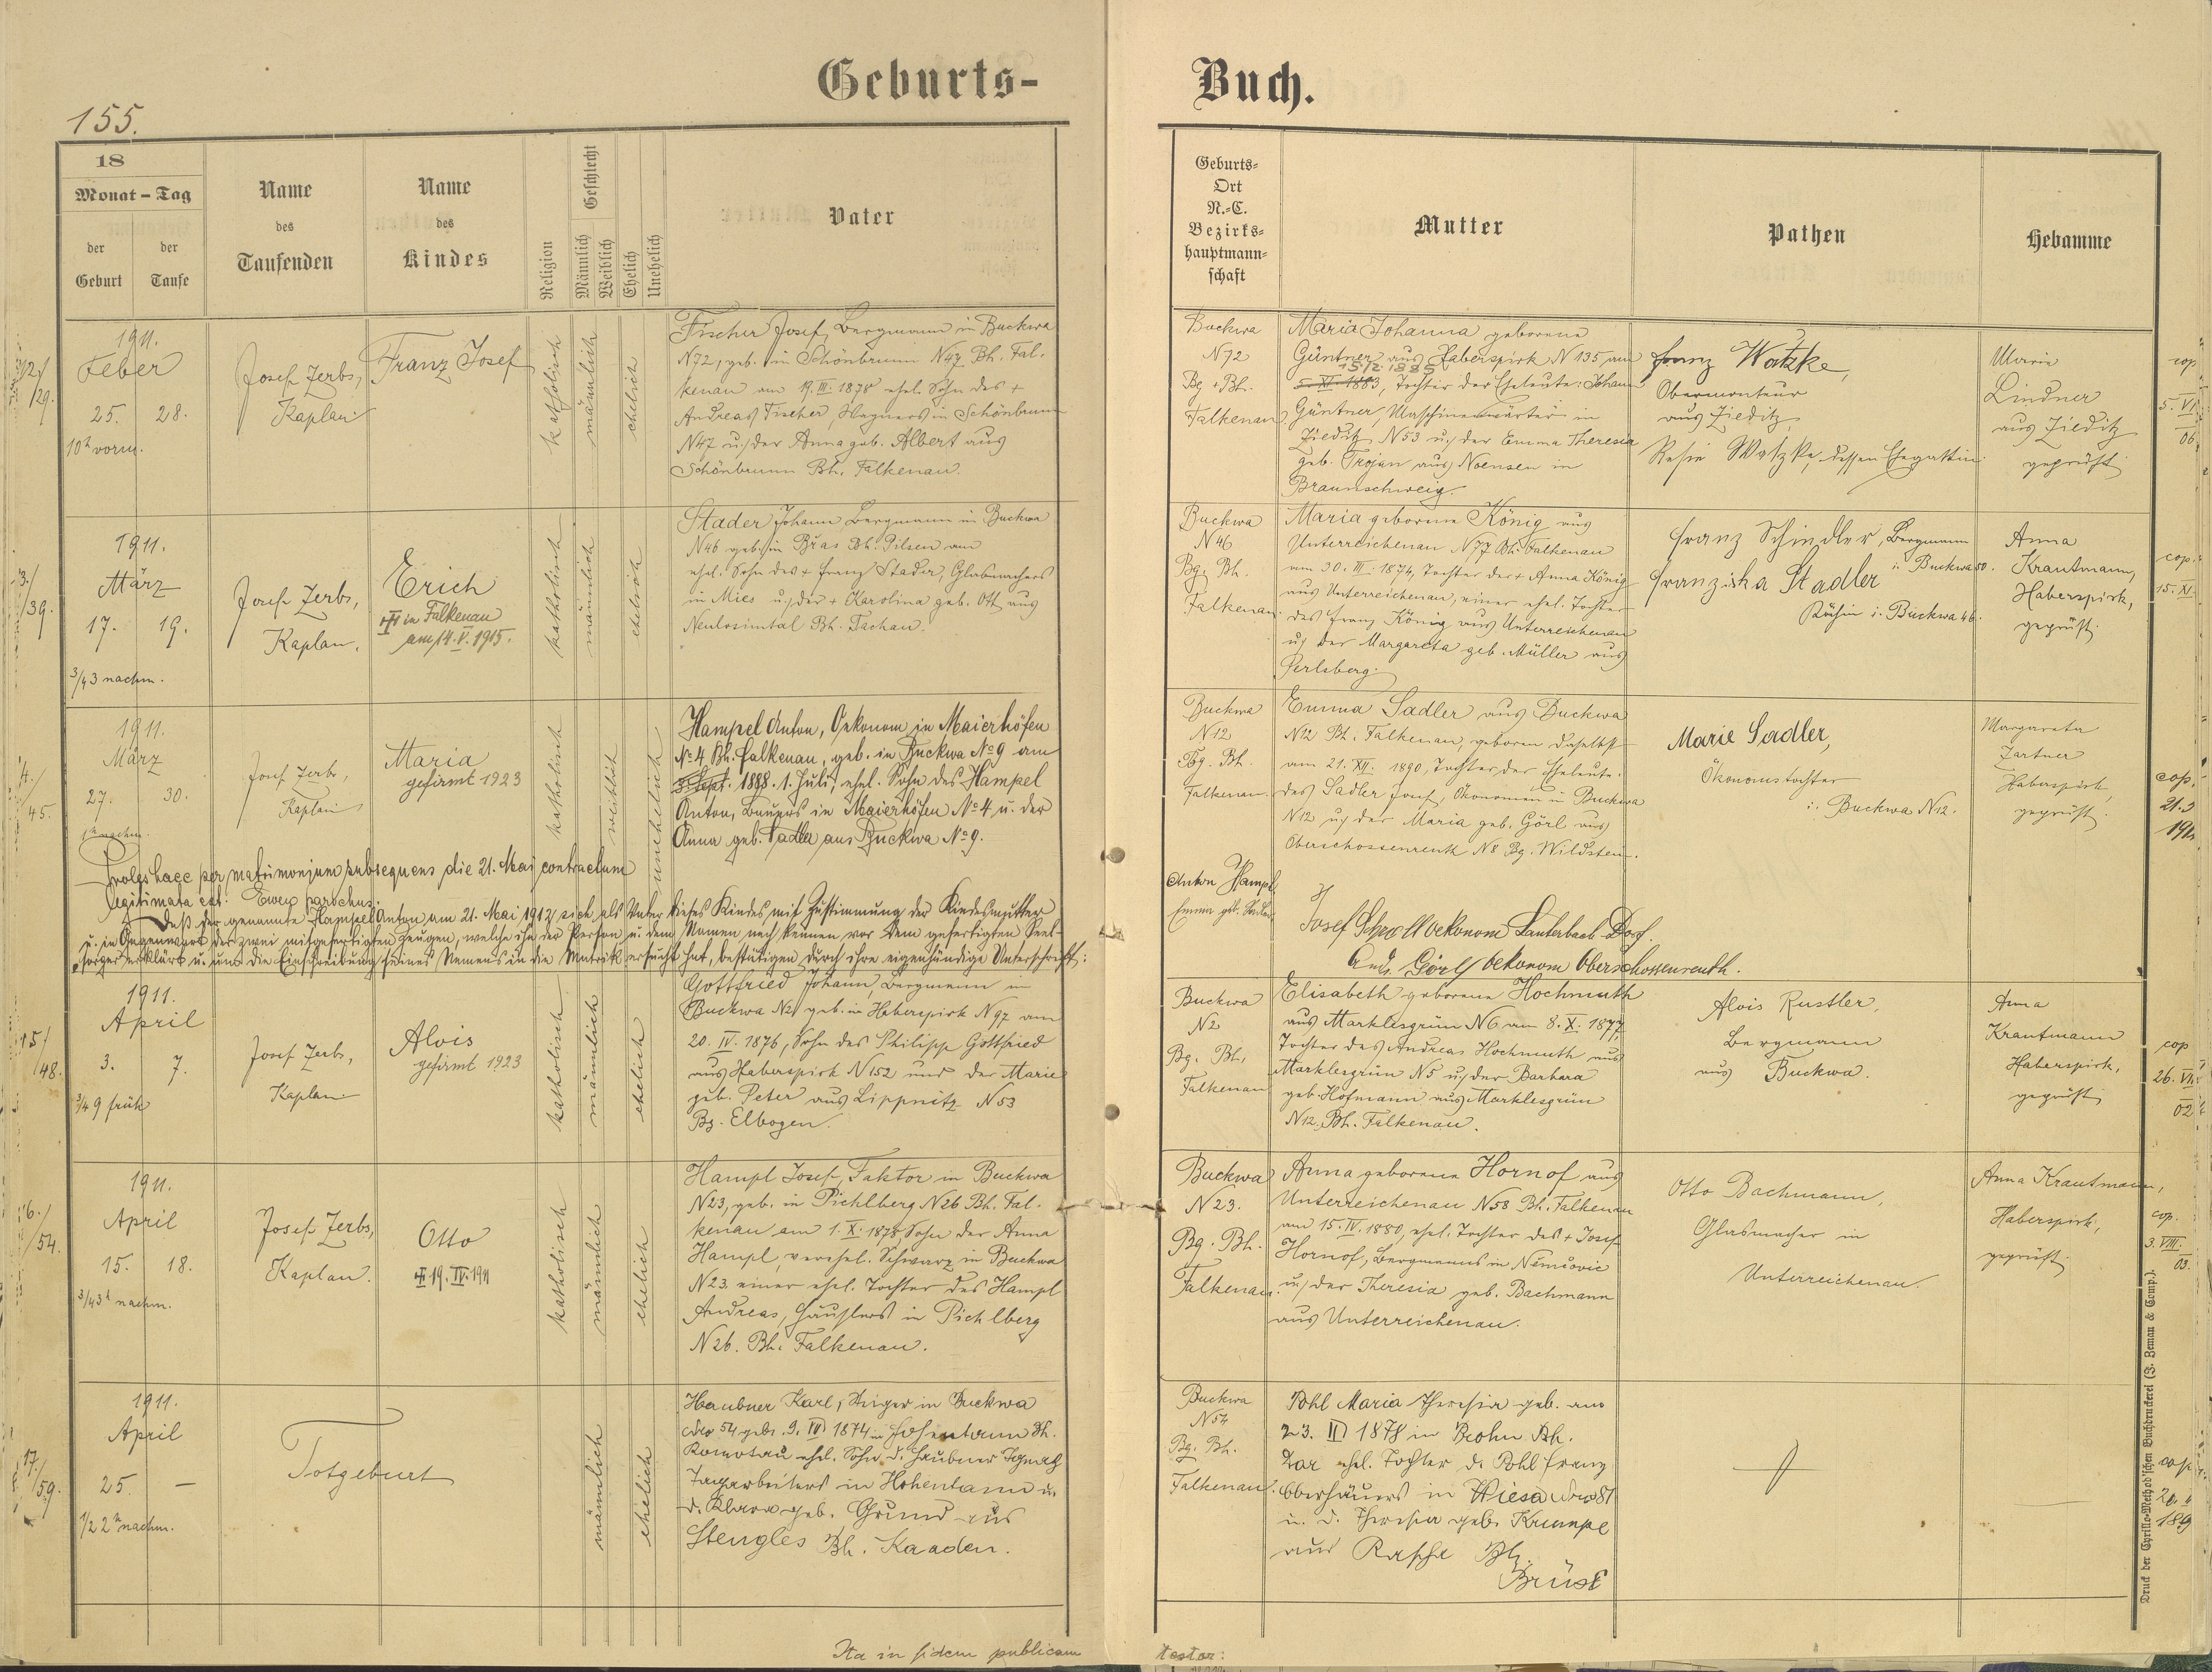 Geburts-
Buch.
155.
18
Monat - Tag
der Geburt
der Taufe
Name
des
Taufenden
Name
des
Kindes
Religion
Geschlecht
Männlich
Weiblich
Ehelich
Unehelich
Vater
Geburts-
Ort
N.-C.
Bezirks-
hauptmann-
schaft
Mutter
Pathen
Hebamme
12/
29.
1911.
Feber
25. 28.
10h vorm.
Josef Zerbs,
Kaplan
Franz Josef
katholisch
männlich
ehelich
Fischer Josef, Bergmann in Buckwa
N72, geb. in Schönbrunn N47 Bh. Fal-
kenau am 19. III. 1878 ehel. Sohn des +
Andreas Fischer, Wagners in Schönbrunn
N47 u. der Anna geb. Albert aus
Schönbrunn Bh. Falkenau.
Buckwa
N72
Bg. + Bh.
Falkenau.
Maria Johanna geborene
Güntner aus Haberspirk N135, am
15/2 1885
5. XI. 1883, Tochter der Eheleute: Johann
Güntner, Maschinenwärters in
Zieditz N53 u. der Emma Theresia
geb. Trojan aus Noensen in
Braunschweig.
Franz Watzke,
Obermonteur
aus Zieditz,
Resie Watzke, dessen Ehegattin
Marie
Lindner
aus Zieditz
geprüft
cop.
5. VI.
06
13./
39.
1911.
März
17. 19.
3/4 3 nachm.
Josef Zerbs,
Kaplan.
Erich
in Falkenau
am 14. V. 1915.
katholisch
männlich
ehelich
Stader Johann Bergmann in Buckwa
N46 geb. in Břas Bh. Pilsen am
ehel. Sohn des + Franz Stader, Glasmachers
in Mies u. der + Karolina geb. Ott aus
Neulosimtal Bh. Tachau.
Buckwa
N46
Bg. Bh.
Falkenau.
Maria geborene König aus
Unterreichenau N77 Bh. Falkenau
am 30. III. 1874, Tochter der + Anna König
aus Unterreichenau, einer ehel. Tochter
des Franz König aus Unterreichenau
u. der Margareta geb. Müller aus
Perlsberg.
Franz Schindler, Bergmann
i. Buckwa 50.
Franziska Stadler
i. Buckwa 46.
Anna
Krautmann,
Haberspirk,
geprüft.
cop.
15. XI.
14./
45.
1911.
März
27. 30.
nachm.
Josef Zerbs,
Kaplan
Maria
gefirmt 1923
katholisch
weiblich
unehelich
Hampel Anton, Oekonom in Maierhöfen
No 4 Bh. Falkenau, geb. in Buckwa No 9 am
3. Sept. 1888. 1. Juli, ehel. Sohn des Hampel
Anton, Bauers in Maierhöfen No 4 u. der
Anna geb. Sadler aus Buckwa No 9.
Buckwa
N12
Bg. Bh.
Falkenau.
Emma Sadler aus Buckwa
N12 Bh. Falkenau, geboren daselbst
am 21. XII. 1890, Tochter der Eheleute:
des Sadler Josef, Ökonomen in Buckwa
N12 u. der Maria geb. Görl aus
Oberschossenreuth N8 Bg. Wildstein.
Marie Sadler,
Ökonomstochter
i. Buckwa N12.
Margareta
Zartner
Haberspirk,
geprüft.
cop.
21.5
1912
Proles haec per matrimonium subsequens die 21. Mai contractum
legitimata est. parochus.
Daß der genannte Hampel Anton am 21. Mai 1912 sich als Vater dieses Kindes mit Zustimmung der Kindesmutter
u. in Gegenwart der zwei mitgefertigten Zeugen, welche ihn der Person u. dem Namen nach kennen, vor dem gefertigten Seel-
sorger erklärt u. um die Einschreibung seines Namens in die Matrik ersucht hat, bestätigen durch ihre eigenhändige Unterschrift:
Anton Hampl
Emma geb. Sadler
Josef Schroll Oekonom Lauterbach Dorf.
And. Görl Oekonom Oberschossenreuth.
15/
48.
1911.
April
3. 7.
3/4 9 früh
Josef Zerbs,
Kaplan
Alois
gefirmt 1923
katholisch
männlich
ehelich
Gottfried Johann, Bergmann in
Buckwa N2 geb. in Haberspirk N97 am
20. IV. 1876, Sohn des Philipp Gottfried
aus Haberspirk N152 und der Marie
geb. Peter aus Lippnitz N53
Bg. Elbogen.
Buckwa
N2
Bg. Bh.
Falkenau
Elisabeth geborene Hochmuth
aus Marklesgrün N6 am 8. X. 1877,
Tochter des Andreas Hochmuth aus
Marklesgrün N5 u. der Barbara
geb. Hofmann aus Marklesgrün
N12, Bh. Falkenau.
Alois Rustler,
Bergmann
aus Buckwa.
Anna
Krautmann
Haberspirk,
geprüft
cop
26. VII.
02
16./
54.
1911.
April
15. 18.
3/4 3h nachm.
Josef Zerbs,
Kaplan.
Otto
19. IV. 1911
katholisch
männlich
ehelich
Hampl Josef, Faktor in Buckwa
N23, geb. in Pichlberg N26 Bh. Fal-
kenau am 1. X. 1878 Sohn der Anna
Hampl, verehel. Schwarz in Buckwa
N23. einer ehel. Tochter des Hampl
Andreas, Häuslers in Pichlberg
N26. Bh. Falkenau.
Buckwa
N23.
Bg. Bh.
Falkenau.
Anna geborene Hornof aus
Unterreichenau N58 Bh. Falkenau
am 15. IV. 1880, ehel. Tochter des + Josef
Hornof, Bergmanns in Nemčovic
u. der Theresia geb. Bachmann
aus Unterreichenau.
Otto Bachmann,
Glasmacher in
Unterreichenau.
Anna Krautmann,
Haberspirk,
geprüft.
cop.
3. VIII.
03.
17./
59.
1911.
April
25. —
1/2 2h nachm.
Totgeburt
männlich
ehelich
Haubner Karl, Steiger in Buckwa
Nro 54 geb. 9. IV 1874 in Hohentann Bh.
Komotau ehel. Sohn d. Haubner Ignatz
Tagarbeiters in Hohentann u.
d. Klara geb. Grund aus
Stengles Bh. Kaaden.
Buckwa
N54
Bg. Bh.
Falkenau.
Pohl Maria Theresia geb. am
23. II 1878 in Prohn Bh.
ehel. Tochter d. Pohl Franz
Oberhäuers in Wiesa Nro 81
u. d. Theresia geb. Krumpl
aus Bh.
Brüx
cop.
Ita in fidem publicam
testor:
Druck der Cyrillo-Method'schen Buchdruckerei (J. Zeman & Comp.).